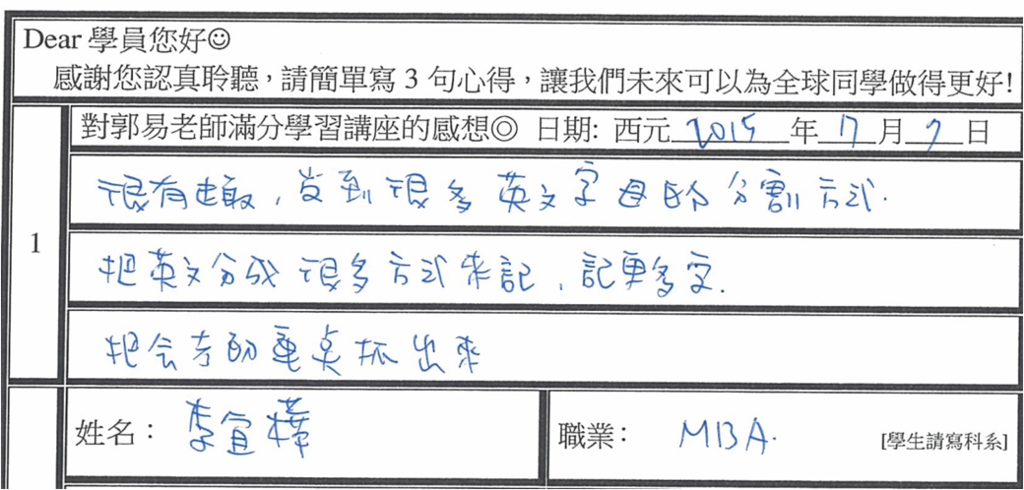 Dear 學員您好☺
感謝您認真聆聽,請簡單寫 3 句心得,讓我們未來可以為全球同學做得更好!
1
對郭易老師滿分學習講座的感想◎ 日期: 西元 2015 年 17 月 7 日
很有趣,学到很多英文字母的分割方式.
把英文分成很多方式來記,記更多字.
把会考的重点抓出來
姓名: 李宜樺
職業: MBA. [學生請寫科系]